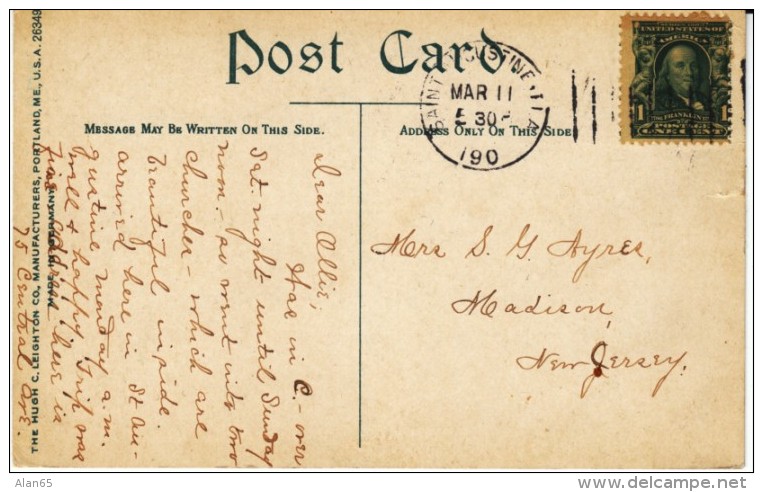 Post Card
MESSAGE MAY BE WRITTEN ON THIS SIDE.
ADDRESS ONLY ON THIS SIDE
THE HUGH C. LEIGHTON CO., MANUFACTURERS, PORTLAND, ME., U.S.A. 26349
MADE IN GERMANY
UNITED STATES OF
AMERICA
1 1
THE FRANKLIN
ONE CENT
SAINT AUGUSTINE FLA
MAR 11
5 30P
190
Dear Allie,
Was in C. over
Sat. night until Sunday
noon - so went into two
churches - which are
beautiful inside.
arrived here in St Au-
gustine Monday a.m.
well & happy. Trip was
fine address here is
75 Central Ave.
Mrs S. G. Ayres,
Madison,
New Jersey.
Alan65
delcampe.net